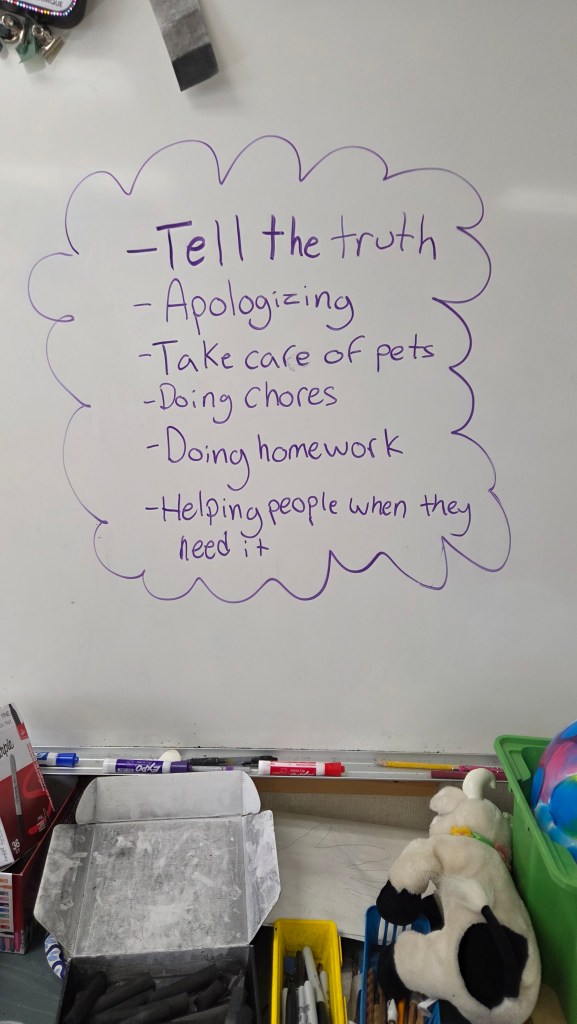 - Tell the truth
- Apologizing
- Take care of pets
- Doing chores
- Doing homework
- Helping people when they
need it
EXPO